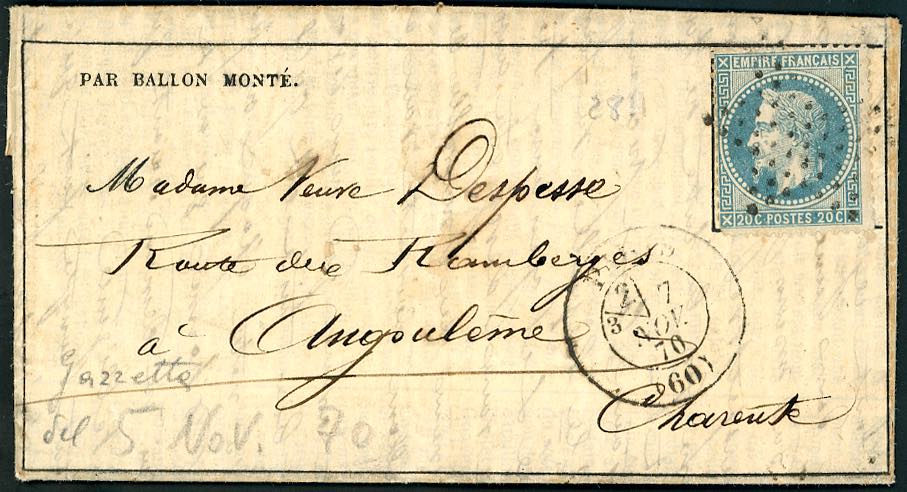 PAR BALLON MONTÉ.
284
EMPIRE FRANÇAIS
20C POSTES 20C
Madame Veuve Despesse
Route des Ramberges
à Angoulême
Charente
3
7
NOV.
70
(60)
Gazzetta
del 5 Nov. 70